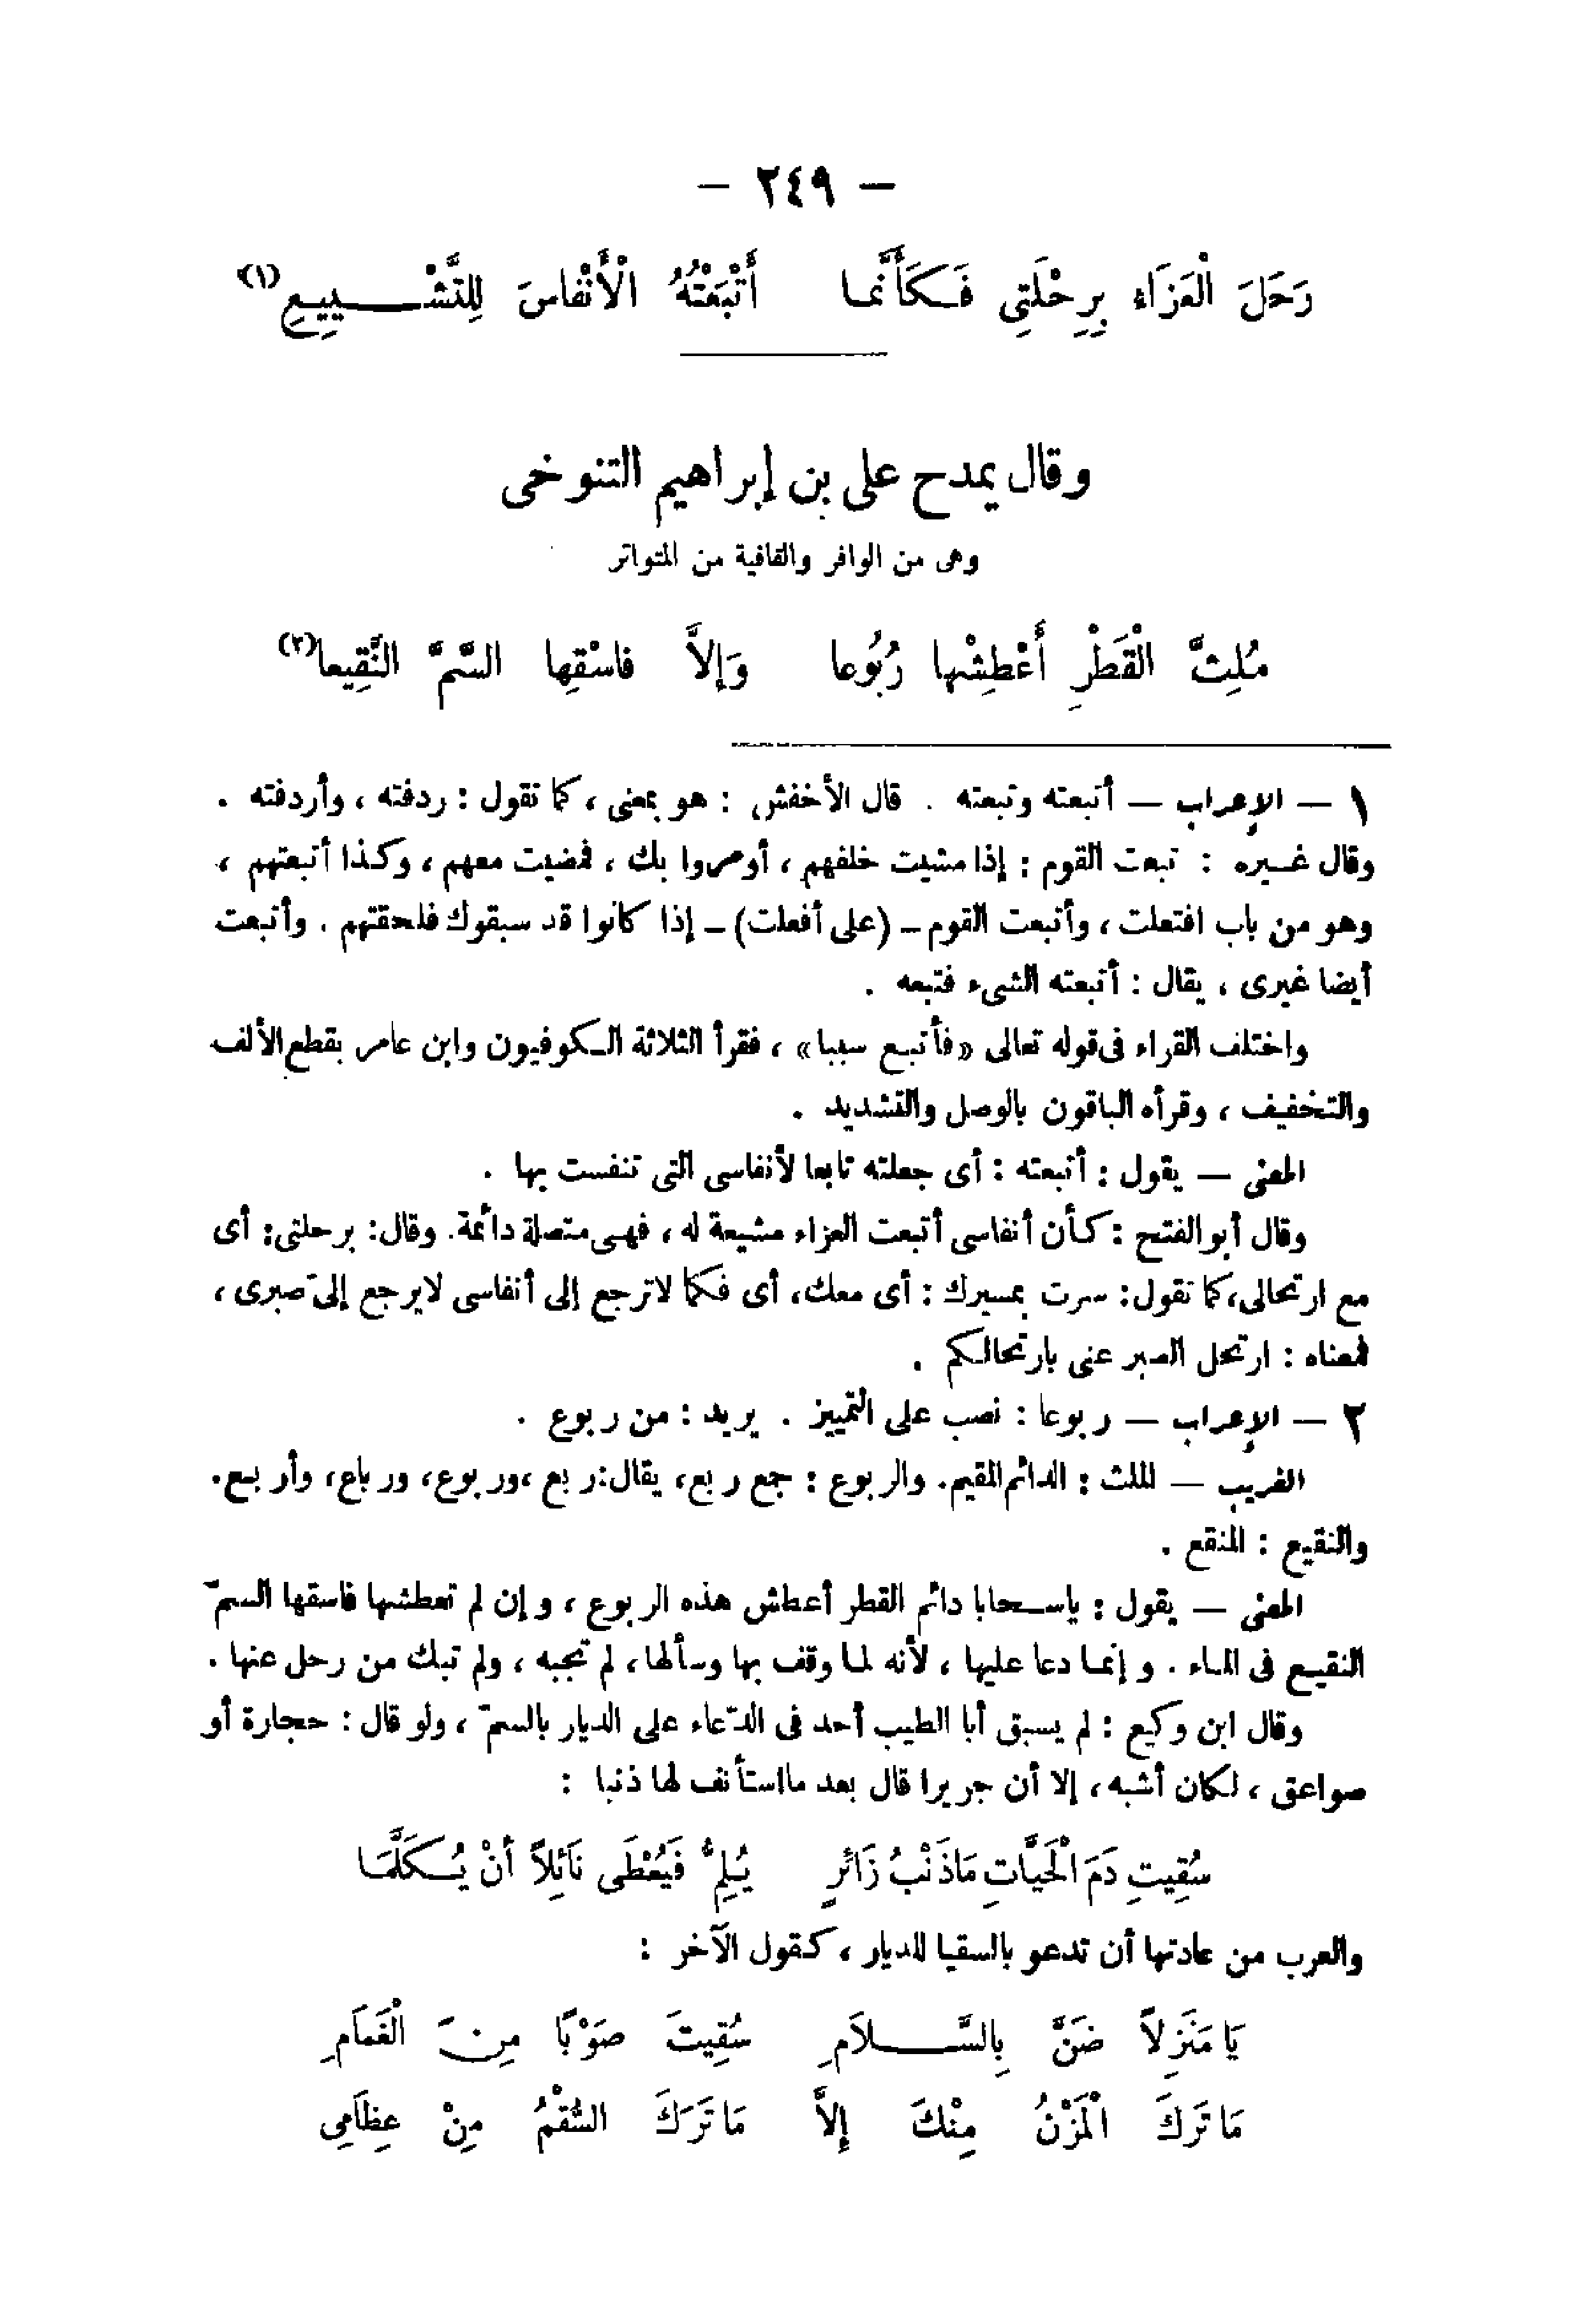 — ٢٤٩ —
رَحَلَ الْعَزَاءِ بِرِحْلَتِى فَكَأَنَّما أَتْبَعْتُهُ الْأَنْفاسَ لِلتَّشْيِيعِ(١)
وقال يمدح على بن إبراهيم التنوخى
وهى من الوافر والقافية من المتواتر
مُلِثَّ الْقَطْرِ أَعْطِشْها رُبُوعا وَإِلاَّ فاسْقِها السَّمَّ النَّقِيعا(٢)
١ — الإعراب — أتبعته وتبعته . قال الأخفش : هو بمعنى ، كما تقول : ردفته ، وأردفته .
وقال غيره : تبعت القوم : إذا مشيت خلفهم ، أومروا بك ، فمضيت معهم ، وكذا أتبعتهم ،
وهو من باب افتعلت ، وأتبعت القوم — (على أفعلت) — إذا كانوا قد سبقوك فلحقتهم . وأتبعت
أيضا غيرى ، يقال : أتبعته الشىء فتبعه .
واختلف القراء فى قوله تعالى «فأتبع سببا» ، فقرأ الثلاثة الكوفيون وابن عامر بقطع الألف
والتخفيف ، وقرأه الباقون بالوصل والتشديد .
المعنى — يقول : أتبعته : أى جعلته تابعا لأنفاسى التى تنفست بها .
وقال أبوالفتح : كأن أنفاسى أتبعت العزاء مشيعة له ، فهى متصلة دائمة. وقال: برحلتى: أى
مع ارتحالى، كما تقول: سرت بمسيرك : أى معك، أى فكما لاترجع إلى أنفاسى لايرجع إلىّ صبرى ،
فمعناه : ارتحل الصبر عنى بارتحالكم .
٢ — الإعراب — ربوعا : نصب على التمييز . يريد : من ربوع .
الغريب — الملث : الدائم المقيم. والربوع : جمع ربع، يقال: ربع ،وربوع، ورباع، وأربع.
والنقيع : المنقع .
المعنى — يقول : ياسحابا دائم القطر أعطش هذه الربوع ، وإن لم تعطشها فاسقها السمّ
النقيع فى الماء . وإنما دعا عليها ، لأنه لما وقف بها وسألها، لم تجبه ، ولم تبك من رحل عنها .
وقال ابن وكيع : لم يسبق أبا الطيب أحد فى الدّعاء على الديار بالسمّ ، ولو قال : حجارة أو
صواعق ، لكان أشبه، إلا أن جريرا قال بعد مااستأنف لها ذنبا :
سُقِيتِ دَمَ الْحَيَّاتِ مَاذَنْبُ زَائرٍ يُلِمُّ فَيُعْطَى نَائِلاً أَنْ يُكَلَّمَا
والعرب من عادتها أن تدعو بالسقيا للديار ، كقول الآخر :
يَا مَنَزِلاً ضَنَّ بِالسَّلاَمِ سُقِيتَ صَوْبًا مِنَ الْغَمَامِ
مَا تَرَكَ الْمُزْنُ مِنْكَ إِلاَّ مَا تَرَكَ السُّقْمُ مِنْ عِظَامِى